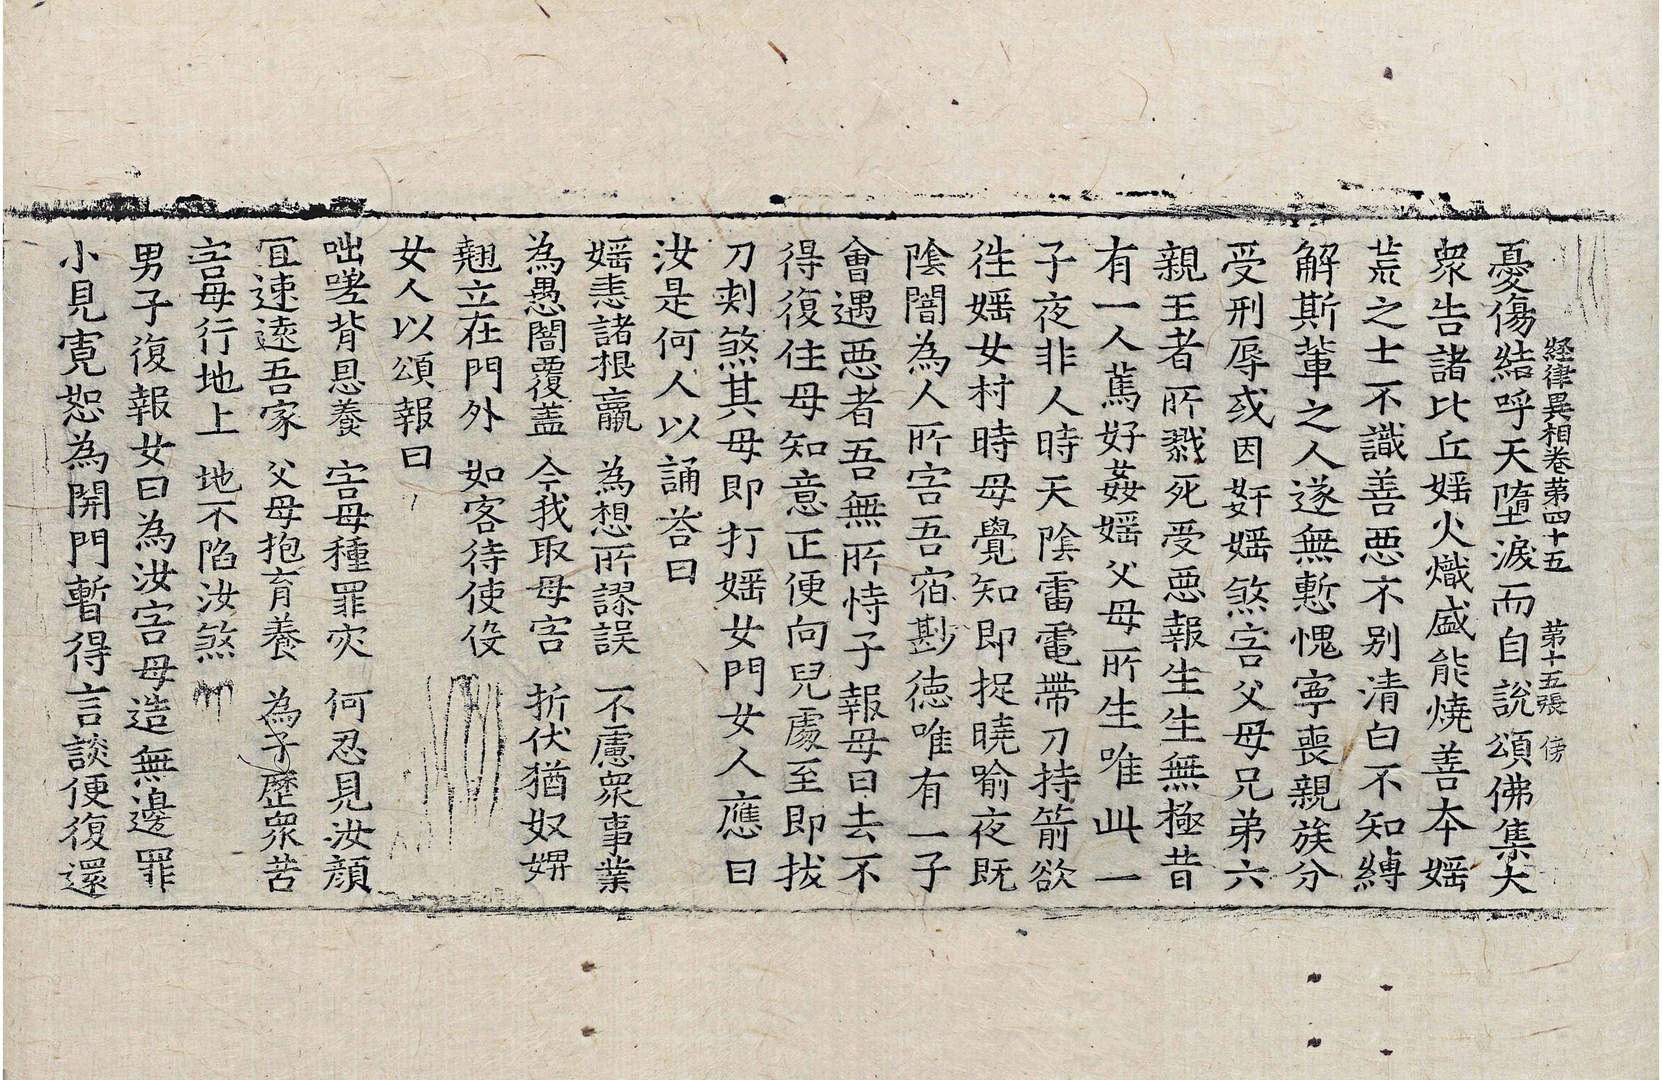 経律異相卷第四十五 第十五張 傍
憂傷結呼天墮淚而自說頌佛集大
衆告諸比丘婬火熾盛能燒善本婬
荒之士不識善惡不别清白不知縛
解斯輩之人遂無慙愧寧喪親族分
受刑辱或因姧婬煞害父母兄弟六
親王者所戮死受惡報生生無極昔
有一人篤好姦婬父母所生唯此一
子夜非人時天陰雷電帶刀持箭欲
往婬女村時母覺知即捉曉喻夜既
陰闇為人所害吾宿尠德唯有一子
會遇惡者吾無所恃子報母曰去不
得復住母知意正便向兒處至即拔
刀刾煞其母即打婬女門女人應曰
汝是何人以誦荅曰
婬恚諸根羸 為想所謬誤 不慮衆事業
為愚闇覆盖 今我取母害 折伏猶奴婢
翹立在門外 如客待使伇
女人以頌報曰
咄嗟背恩養 害母種罪灾 何忍見汝顔
宜速遠吾家 父母抱育養 為子歷衆苦
害母行地上 地不陷汝煞
男子復報女曰為汝害母造無邊罪
小見寬恕為開門暫得言談便復還